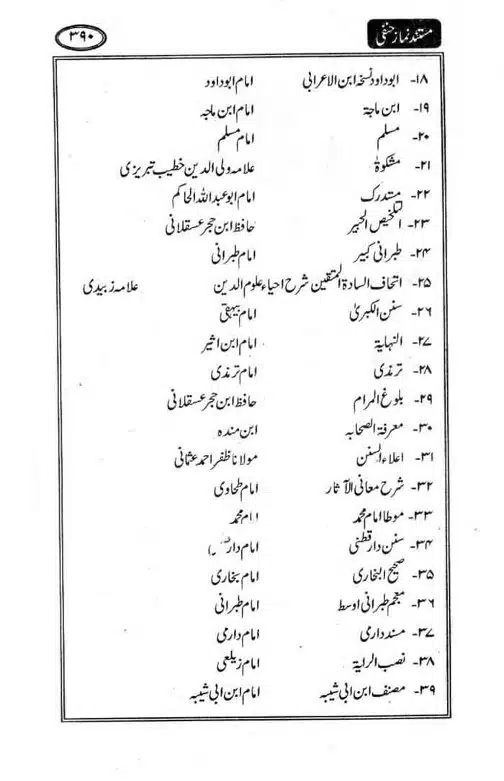 مستند نماز حنفی ۳۹۰
۱۸- ابوداود نسخہ ابن الاعرابی امام ابوداود
۱۹- ابن ماجۃ امام ابن ماجہ
۲۰- مسلم امام مسلم
۲۱- مشکوۃ علامہ ولی الدین خطیب تبریزی
۲۲- مستدرک امام ابوعبداللہ الحاکم
۲۳- التلخیص الحبیر حافظ ابن حجر عسقلانی
۲۴- طبرانی کبیر امام طبرانی
۲۵- اتحاف السادۃ المتقین شرح احیاء علوم الدین علامہ زبیدی
۲۶- سنن الکبریٰ امام بیہقی
۲۷- النہایۃ امام ابن اثیر
۲۸- ترمذی امام ترمذی
۲۹- بلوغ المرام حافظ ابن حجر عسقلانی
۳۰- معرفۃ الصحابہ ابن مندہ
۳۱- اعلاء السنن مولانا ظفر احمد عثمانی
۳۲- شرح معانی الآثار امام طحاوی
۳۳- موطا امام محمد امام محمد
۳۴- سنن دارقطنی امام دار
۳۵- صحیح البخاری امام بخاری
۳۶- معجم طبرانی اوسط امام طبرانی
۳۷- مسند دارمی امام دارمی
۳۸- نصب الرایۃ امام زیلعی
۳۹- مصنف ابن ابی شیبہ امام ابن ابی شیبہ